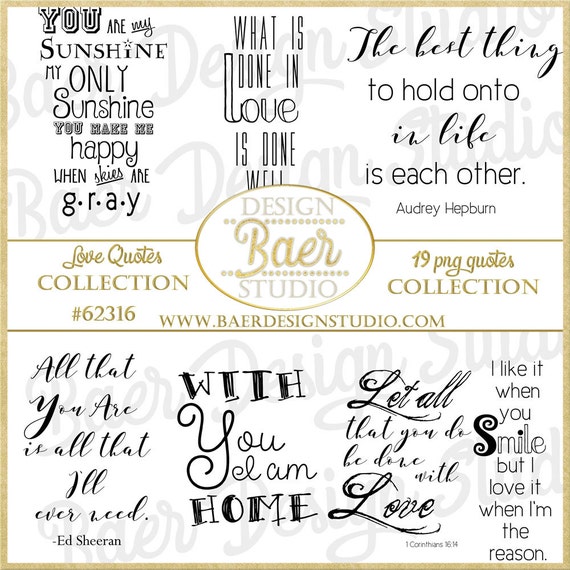 YOU ARE my
SUNSHINE
MY ONLY
Sunshine
YOU MAKE ME
happy
WHEN skies ARE
g.r.a.y
WHAT IS
DONE IN
Love
IS DONE
WELL
The best thing
to hold onto
in life
is each other.
Audrey Hepburn
Love Quotes
COLLECTION
#62316
DESIGN
Baer
STUDIO
19 png quotes
COLLECTION
WWW.BAERDESIGNSTUDIO.COM
All that
You Are
is all that
I'll
ever need.
-Ed Sheeran
WITH
You
I am
HOME
Let all
that you do
be done
with
Love
1 Corinthians 16:14
I like it
when
you
Smile
but I
love it
when I'm
the
reason.
Baer Design Studio